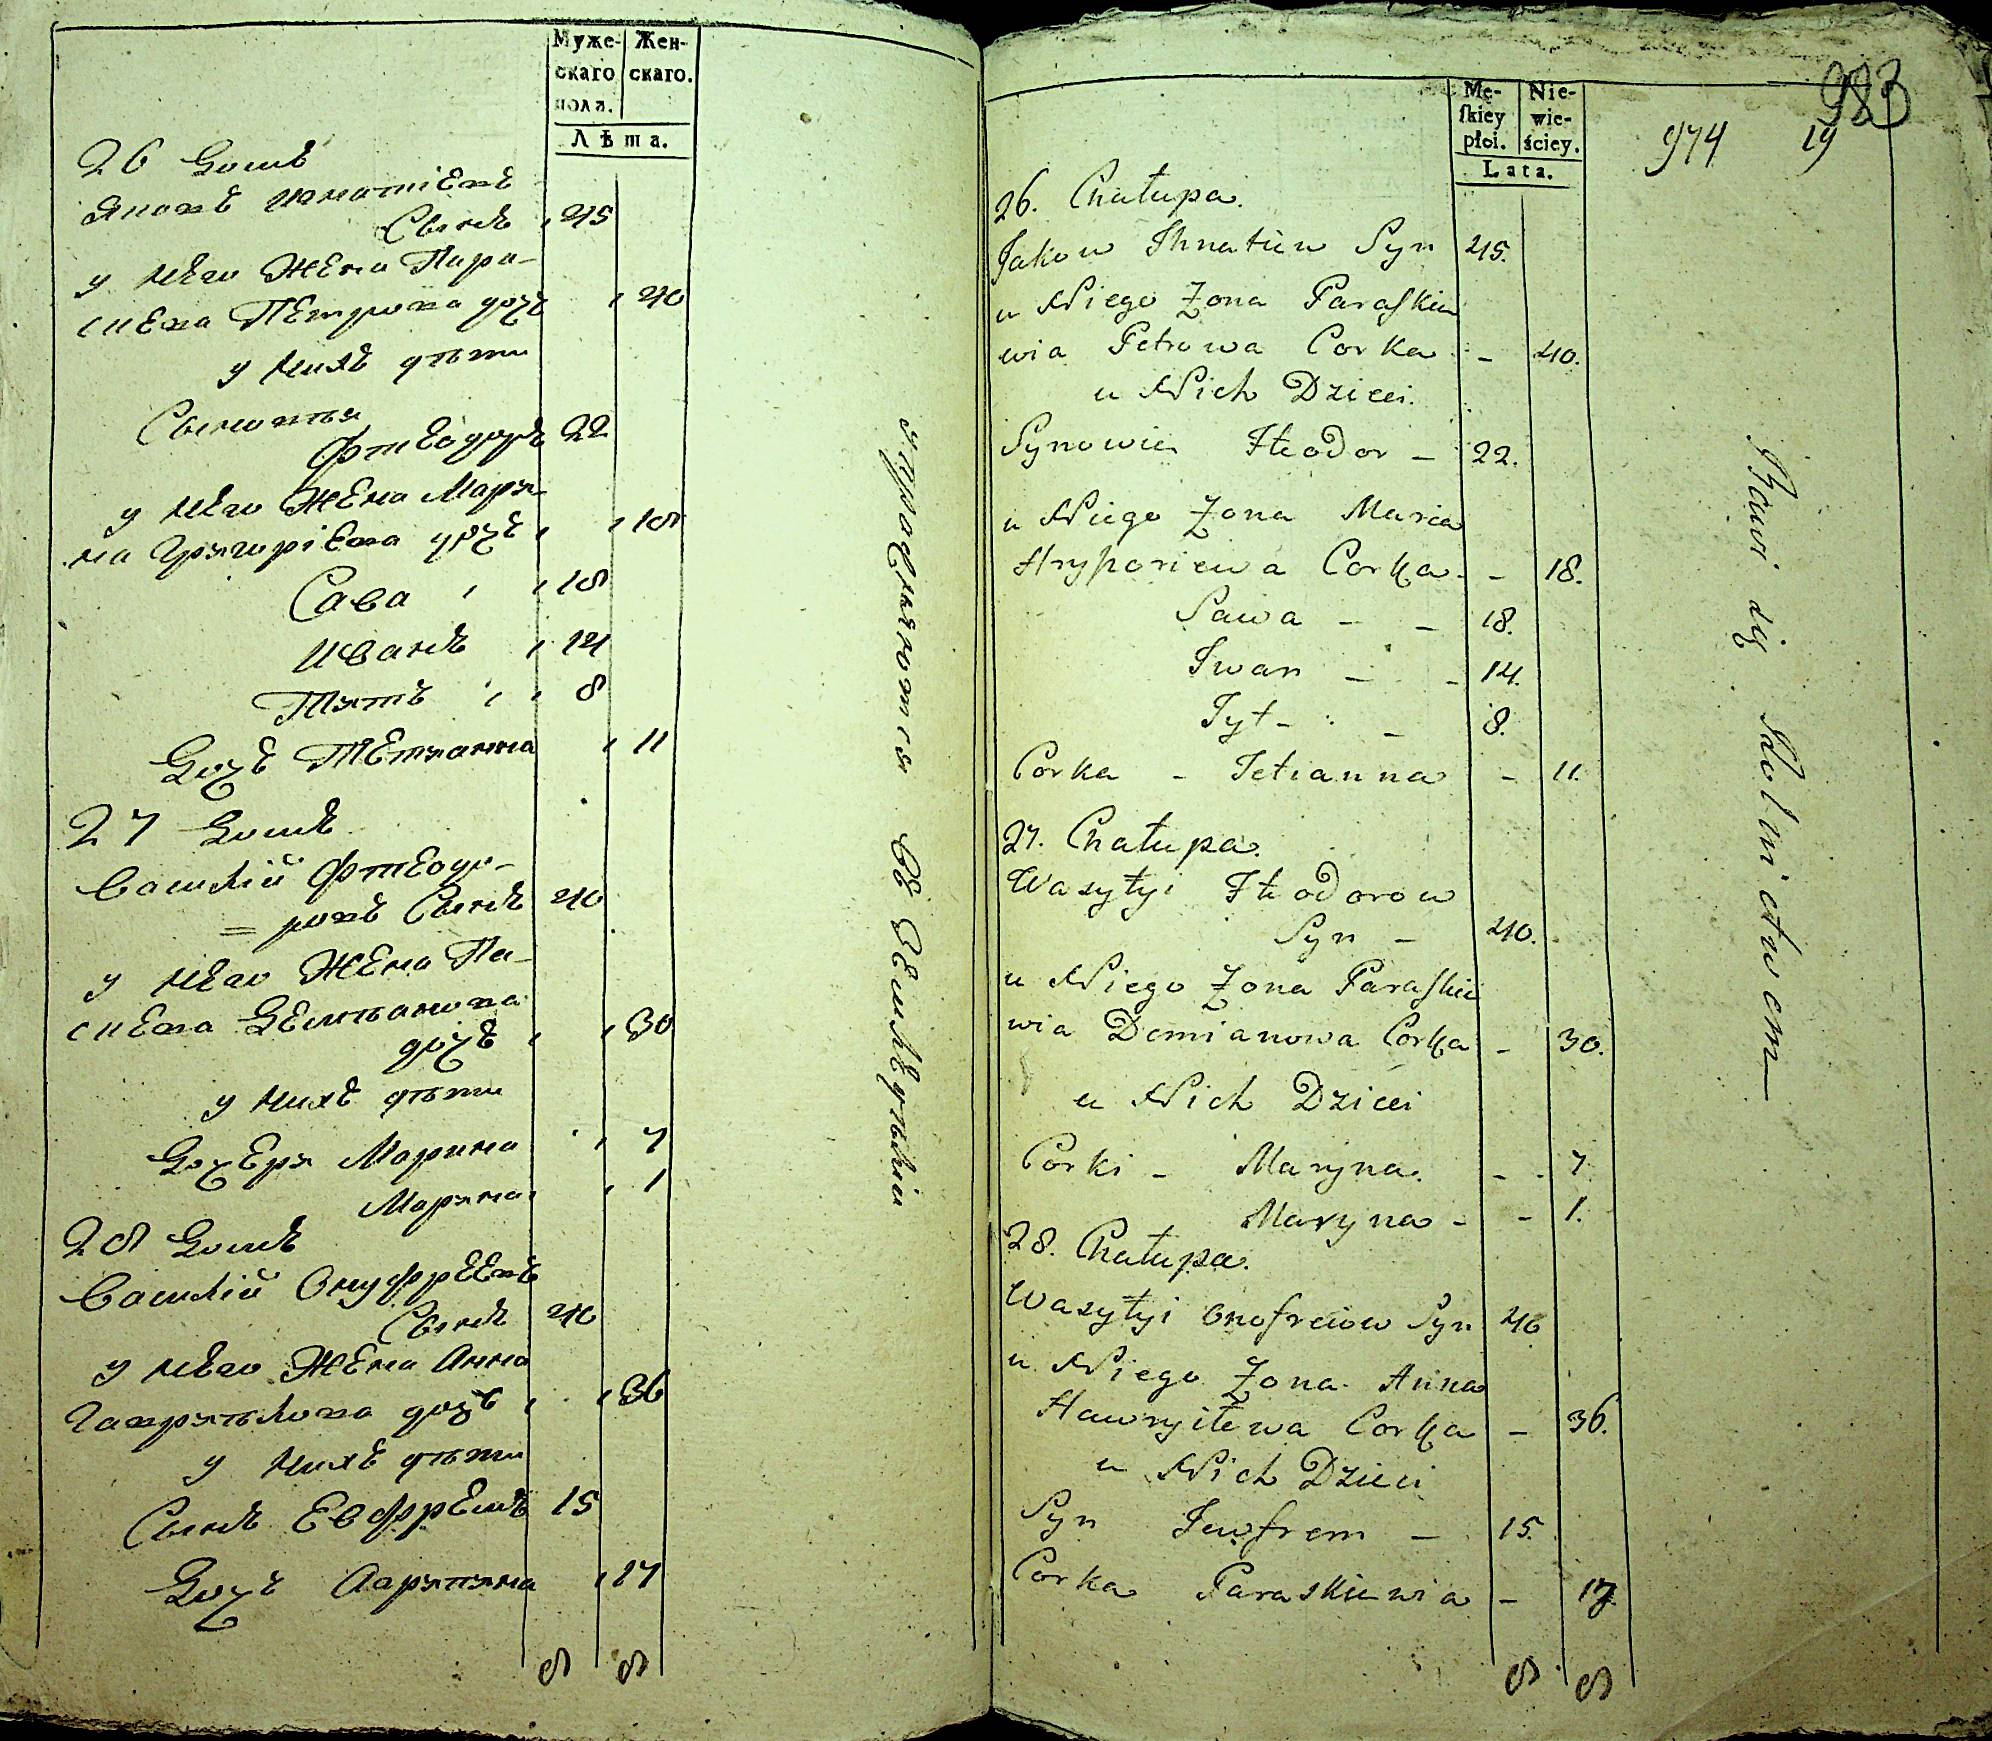 Муже-
скаго
пола.
Жен-
скаго.
Лѣта.
26 Домъ
Яковъ Игнатіевъ
Сынъ 45
у Него Жена Пара-
скева Петрова дочь 40
у Нихъ дѣти
Сыновья
Фтеодоръ 22
у Него Жена Марья-
на Григоріева дочь 18
Сава 18
Иванъ 14
Титъ 8
Дочь Тетianна 11
27 Домъ
Василій Фтеодо-
=ровъ Сынъ 40
у Него Жена Па-
скева Демьянова
дочь 30
у Нихъ дѣти
Дочери Марина 7
Марина 1
28 Домъ
Василій Онуфреевъ
Сынъ 40
у Него Жена Анна
Гаврилова дочь 36
у Нихъ дѣти
Сынъ Евфремъ 15
Дочь 17
8 8
упражняются въ Земледѣліи
Mę-
skiey
płci.
Nie-
wie-
ściey.
Lata.
983
974 19
26. Chałupa.
Jakow Ihnatiew Syn 45.
u Niego Żona Paraskie
wia Petrowa Corka - 40.
u Nich Dzieci.
Synowie Fteodor - 22.
u Niego Żona Maria
Hryhoriewa Corka - - 18.
Sawa - - 18.
Iwan - - 14.
Tyt - - 8.
Corka - Tetianna - 11.
27. Chałupa.
Wasyłyi Fteodorow
Syn - 40.
u Niego Żona Paraskie
wia Demianowa Corka - 30.
u Nich Dzieci
Corki - Maryna. - - 7.
Maryna - - 1.
28. Chałupa.
Wasyłyi Onofreiow Syn 40
u Niego Żona Anna
Hawryiłewa Corka - 36.
u Nich Dzieci
Syn Jewfrem - 15.
Corka Paraskiewia - 17.
8 8
Bawi się Rolnictwem